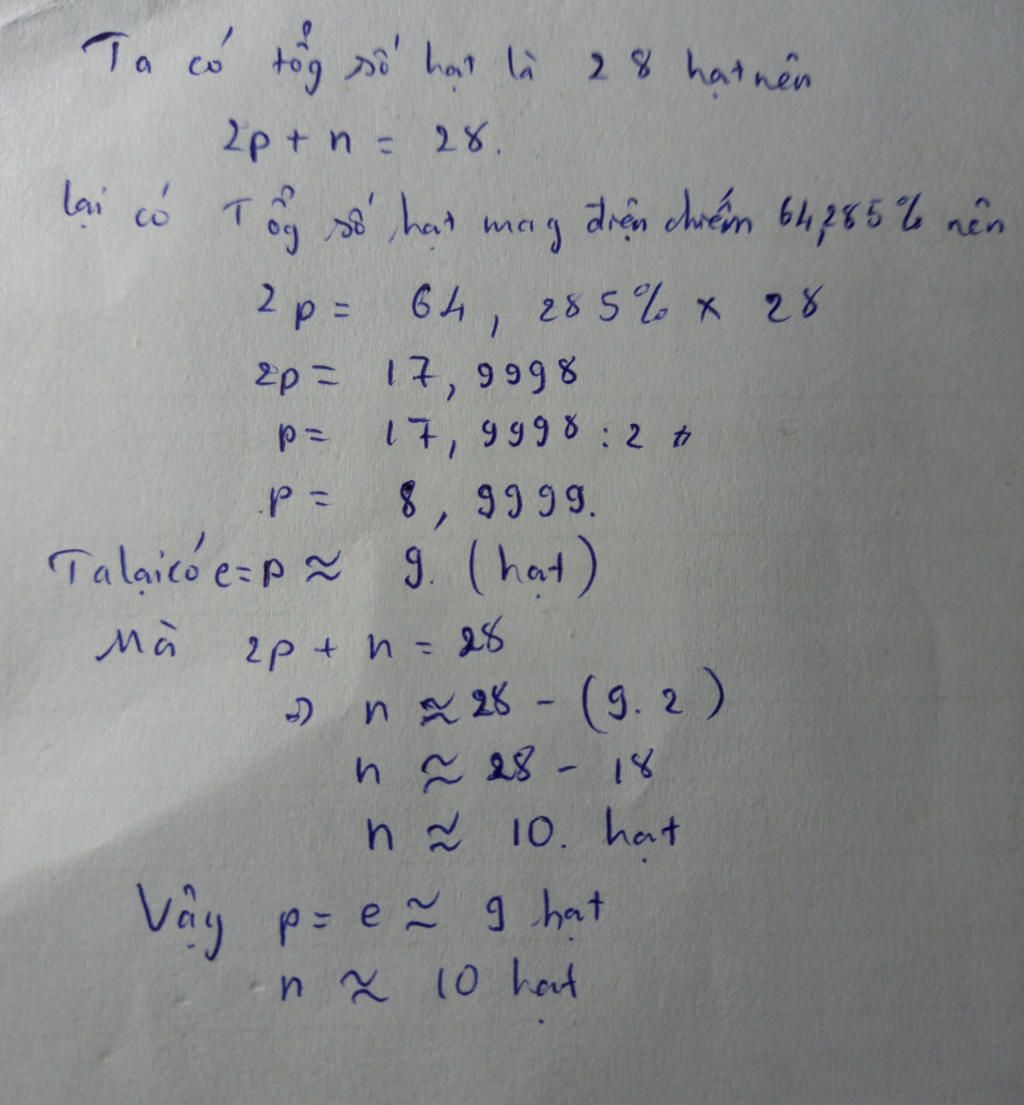 Ta có tổg số hạt là 28 hạt nên
2p + n = 28.
lại có Tổg số hạt mag điện chiếm 64,285% nên
2p = 64,285% x 28
2p = 17,9998
p = 17,9998 : 2
p = 8,9999.
Ta lại có e = p ≈ 9. (hạt)
Mà 2p + n = 28
=> n ≈ 28 - (9.2)
n ≈ 28 - 18
n ≈ 10. hạt
Vậy p = e ≈ 9 hạt
n ≈ 10 hạt